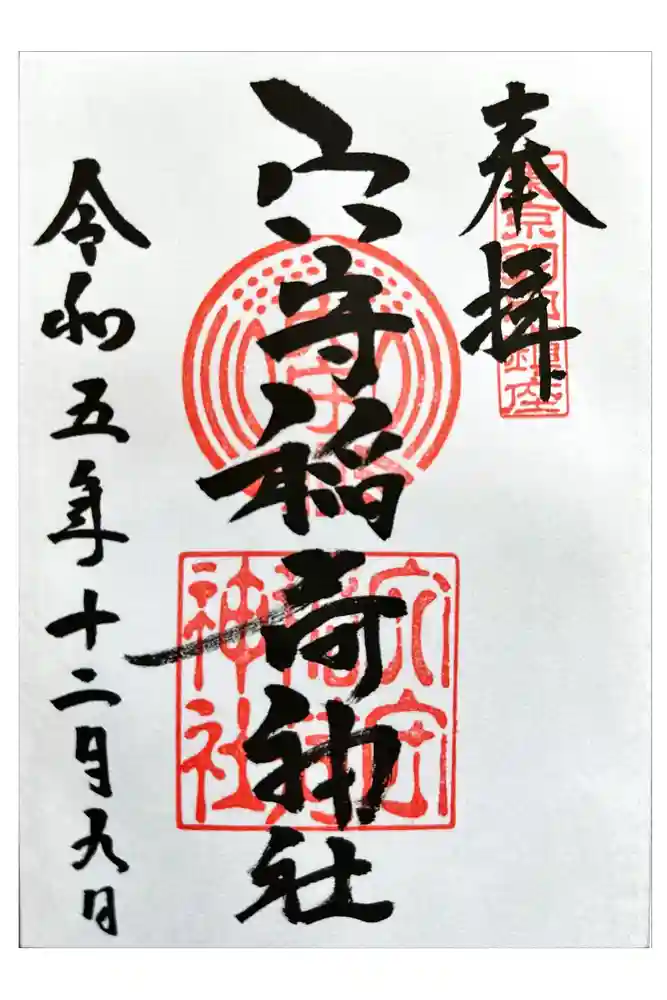 奉拝
東京羽田鎮座
穴守稲荷神社
穴守稲荷神社
令和五年十二月九日